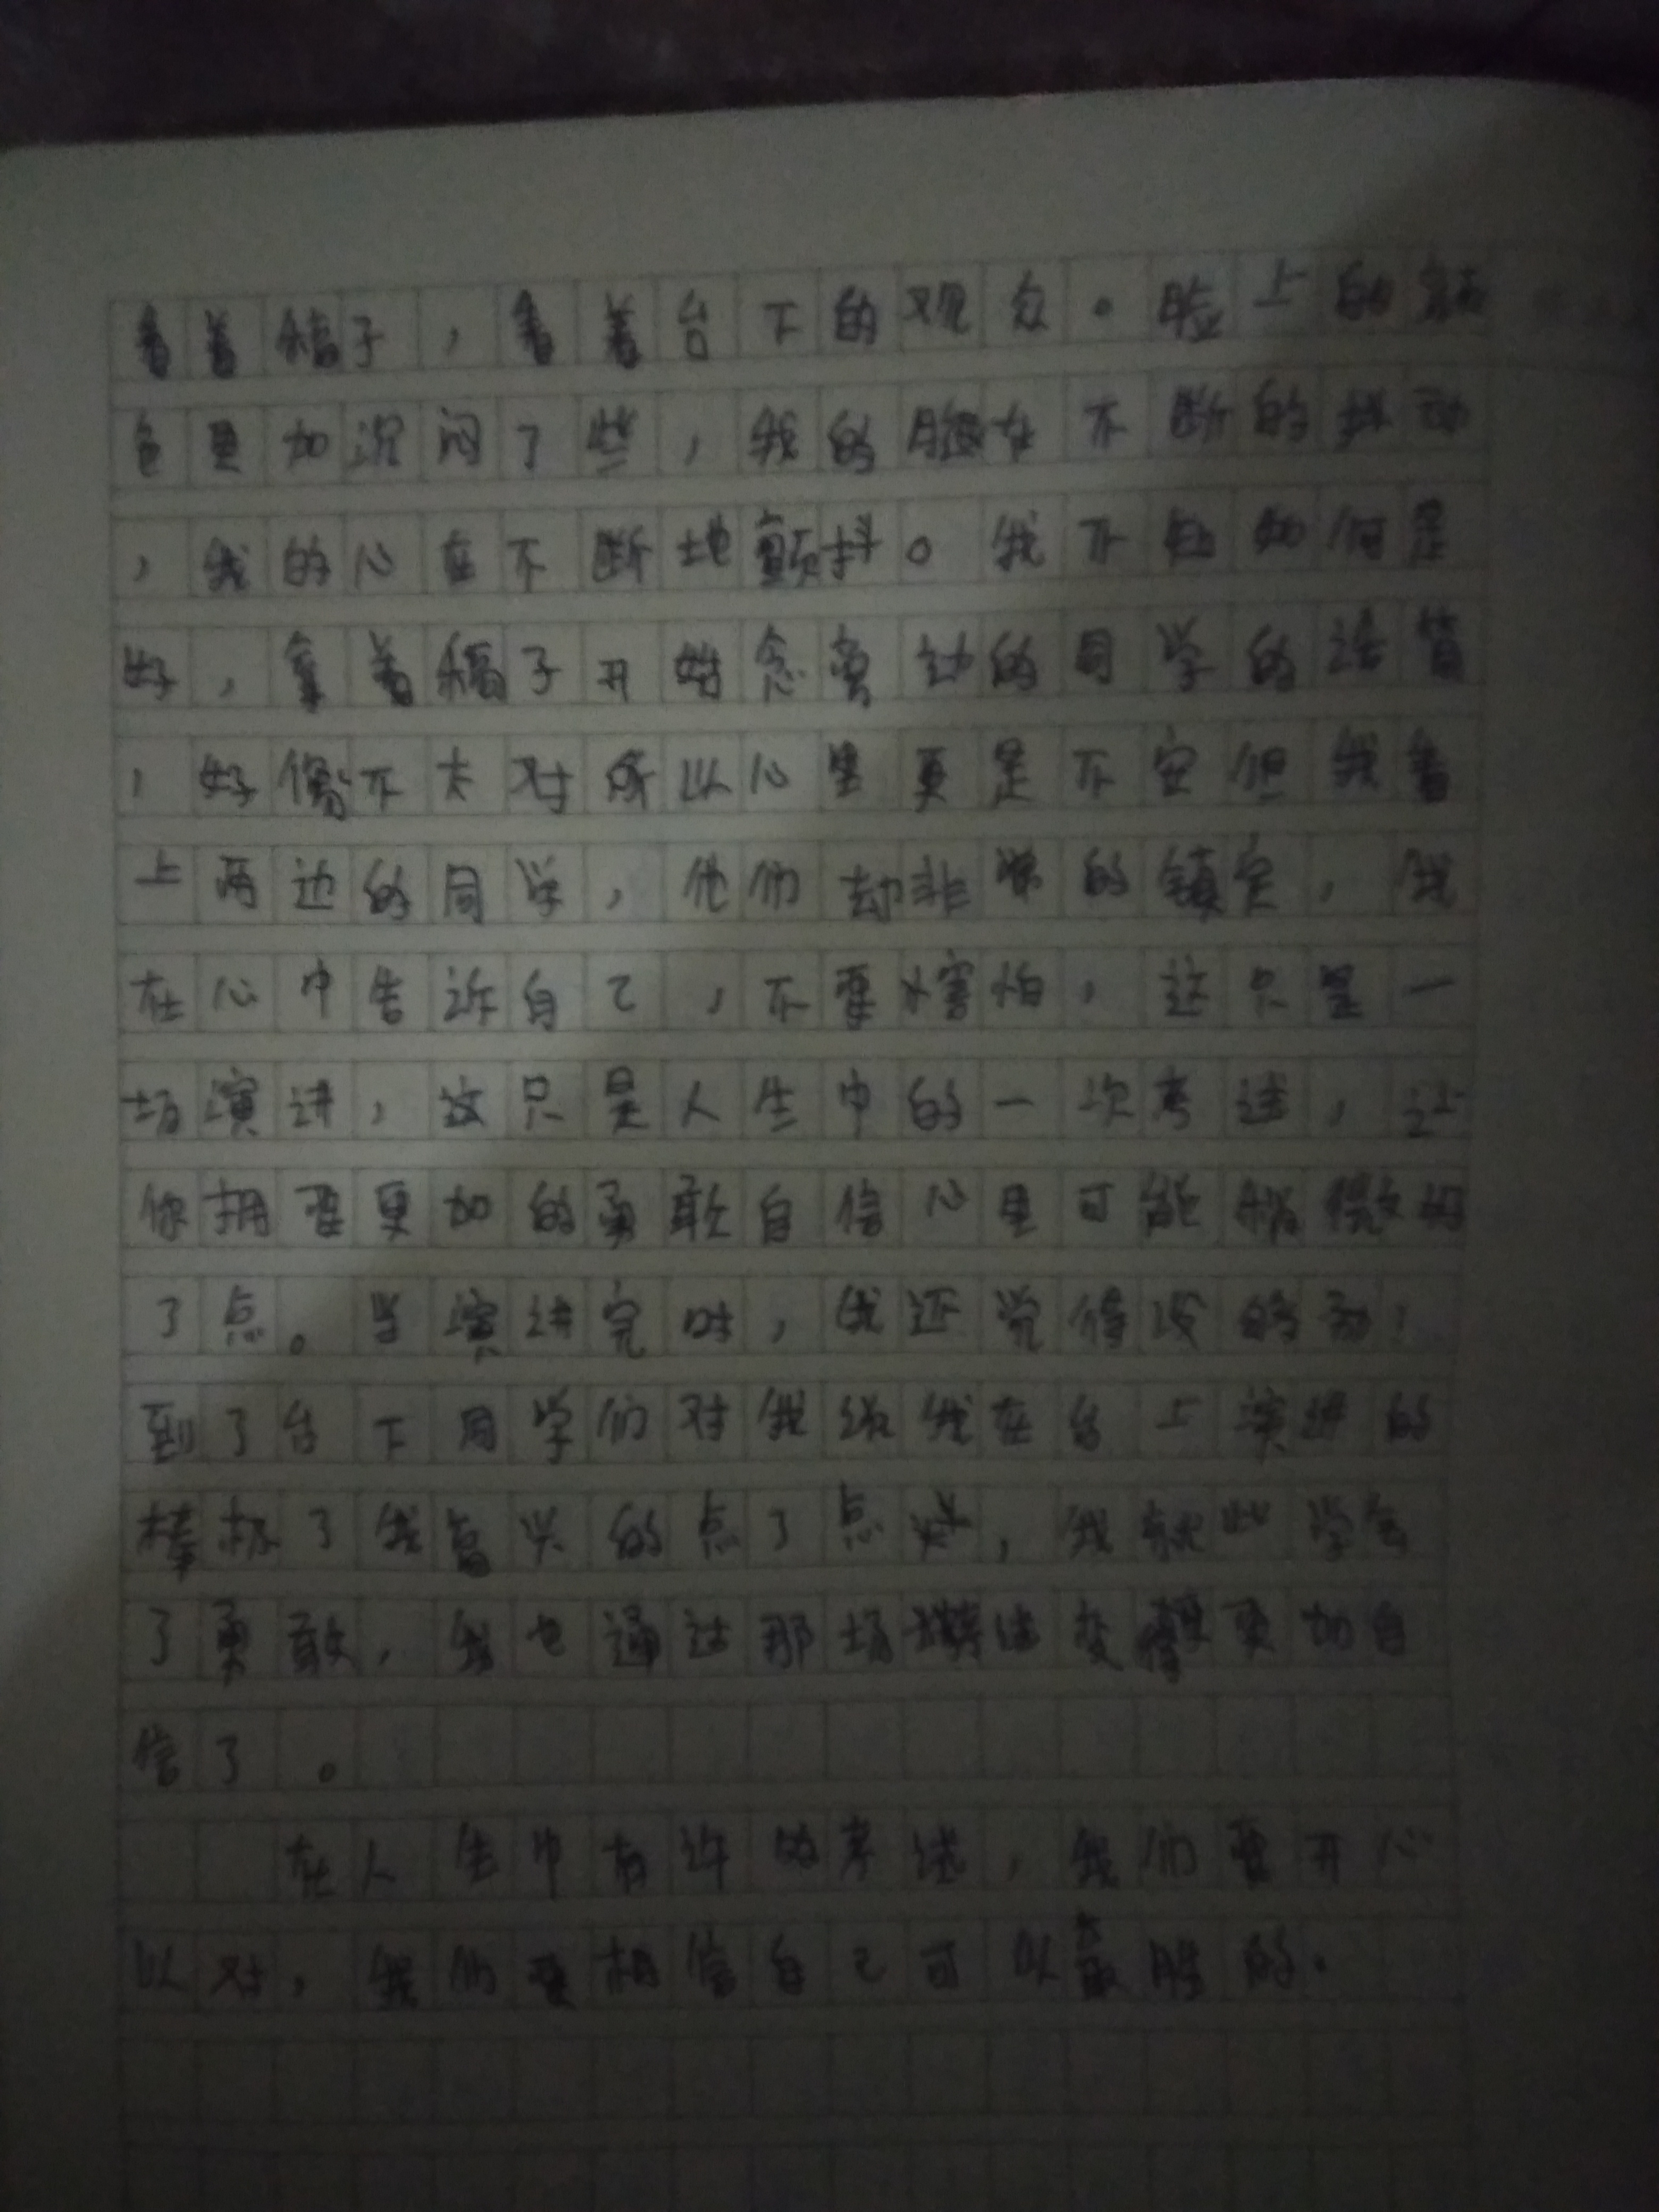 看着稿子，看着台下的观众。脸上的颜
色更加沉闷了些，我的腿在不断的抖动
，我的心在不断地颤抖。我不知如何是
好，拿着稿子开始念旁边的同学的话筒
，好像不太对所以心里更是不安但我看
上两边的同学，他们却非常的镇定，我
在心中告诉自己，不要害怕，这只是一
场演讲，这只是人生中的一次考试，让
你拥更加的勇敢自信心里可能稍微好
了点。当演讲完时，我还觉得没
到了台下同学们对我说我在台上演讲的
棒极了我高兴的点了点头，我就此学会
了勇敢，我也通过那场演讲变得更加自
信了。
在人生中有许的考试，我们要开心
以对，我们要相信自己可以胜的。